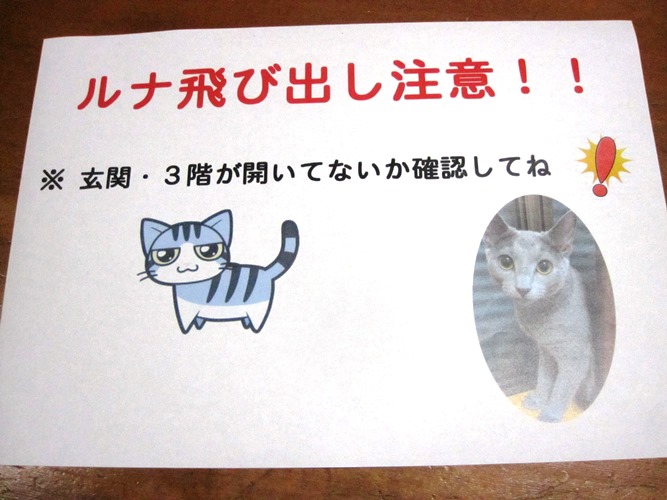 ルナ飛び出し注意！！
※ 玄関・３階が開いてないか確認してね